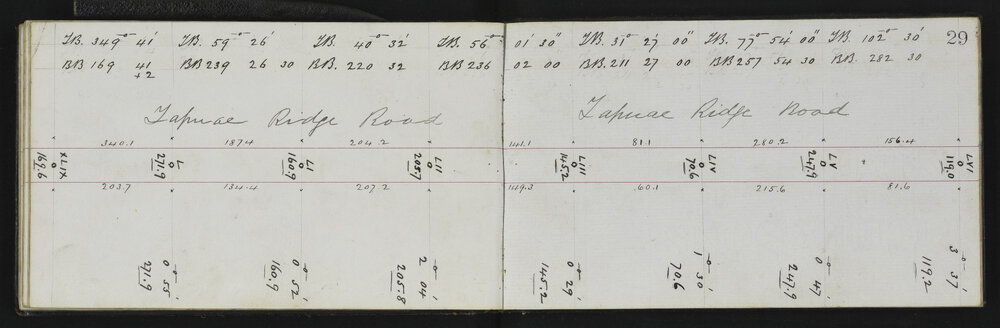 TB. 349° 41' TB. 59° 26' TB. 40° 32' TB. 56° 01' 30" TB. 31° 27' 00" TB. 77° 54' 00" TB. 102° 30' 29
BB 169 41 BB 239 26 30 BB. 220 32 BB 236 02 00 BB. 211 27 00 BB 257 54 30 BB. 282 30
+2
Tapuae Ridge Road Tapuae Ridge Road
340.1 187.4 204.2 141.1 81.1 280.2 156.4
XLIX L LI LII LIII LIV LV LVI
0 0 0 0 0 0 0 0
169.6 271.9 160.9 205.7 145.2 70.6 247.9 119.0
203.7 134.4 207.2 149.3 60.1 215.6 81.6
0° 55' 0° 52' 2° 04' 0° 29' 1° 30' 0° 47' 3° 37'
271.9 160.9 205.8 145.2 70.6 247.9 119.2